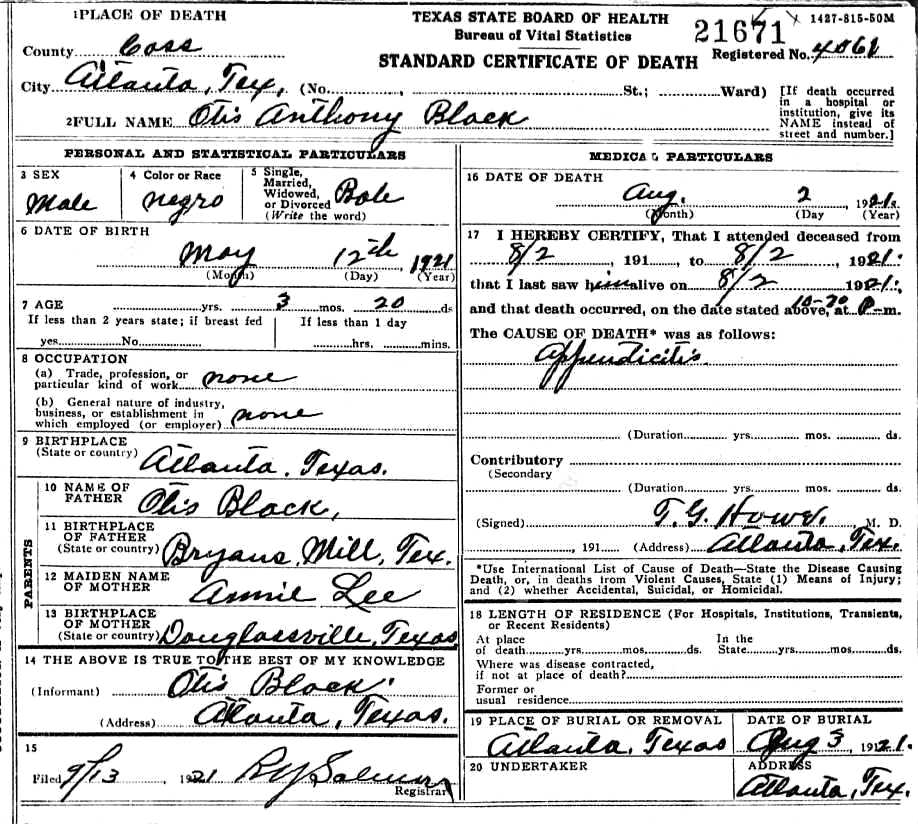 1PLACE OF DEATH
TEXAS STATE BOARD OF HEALTH
21671
1427-815-50M
County Cass
Bureau of Vital Statistics
Registered No. 4061
STANDARD CERTIFICATE OF DEATH
City Atlanta, Tex, (No. , St.; Ward)
[If death occurred in a hospital or institution, give its NAME instead of street and number.]
2FULL NAME Otis Anthony Black
PERSONAL AND STATISTICAL PARTICULARS
3 SEX
Male
4 Color or Race
negro
5 Single, Married, Widowed, or Divorced
(Write the word)
6 DATE OF BIRTH
May 12th, 1921
(Month) (Day) (Year)
7 AGE yrs. 3 mos. 20 ds
If less than 2 years state; if breast fed
yes No
If less than 1 day
hrs. mins.
8 OCCUPATION
(a) Trade, profession, or
particular kind of work none
(b) General nature of industry,
business, or establishment in
which employed (or employer) none
9 BIRTHPLACE
(State or country) Atlanta, Texas.
PARENTS
10 NAME OF
FATHER Otis Black,
11 BIRTHPLACE
OF FATHER
(State or country) Bryans Mill, Tex.
12 MAIDEN NAME
OF MOTHER Annie Lee
13 BIRTHPLACE
OF MOTHER
(State or country) Douglassville, Texas
14 THE ABOVE IS TRUE TO THE BEST OF MY KNOWLEDGE
(Informant) Otis Black
(Address) Atlanta, Texas.
15
Filed 9/13, 1921
Registrar
MEDICAL PARTICULARS
16 DATE OF DEATH
Aug. 2, 1921.
(Month) (Day (Year)
17 I HEREBY CERTIFY, That I attended deceased from
8/2, 191 , to 8/2, 1921.
that I last saw him alive on 8/2 1921.
and that death occurred, on the date stated above, at P-m.
The CAUSE OF DEATH* was as follows:
Appendicitis
(Duration yrs. mos. ds.
Contributory
(Secondary
(Duration yrs. mos. ds.
(Signed) T. G. Howe, M. D.
, 191 (Address) Atlanta, Tex.
*Use International List of Cause of Death—State the Disease Causing
Death, or, in deaths from Violent Causes, State (1) Means of Injury;
and (2) whether Accidental, Suicidal, or Homicidal.
18 LENGTH OF RESIDENCE (For Hospitals, Institutions, Transients,
or Recent Residents)
At place
of death yrs. mos. ds.
In the
State yrs. mos. ds.
Where was disease contracted,
if not at place of death?
Former or
usual residence
19 PLACE OF BURIAL OR REMOVAL
Atlanta, Texas
DATE OF BURIAL
Aug 3, 1921.
20 UNDERTAKER
ADDRESS
Atlanta, Tex.